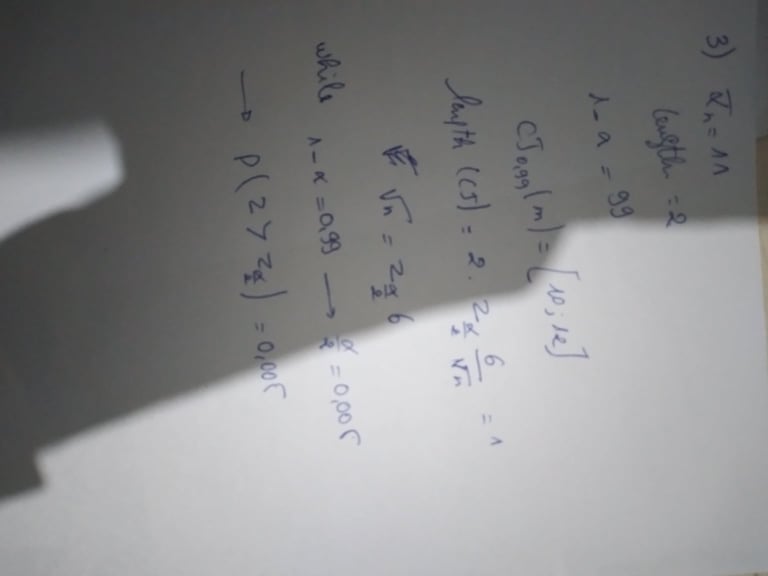 3) x̄n = 11
length = 2
1 - α = 99
CI0,99(m) = [10; 12]
length (CI) = 2 · Zα/2 6/√n = 1
√n = Zα/2 6
while 1 - α = 0,99 → α/2 = 0,005
→ P(Z > Zα/2) = 0,005